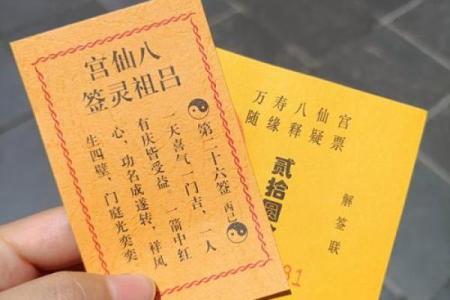 八仙宫
吕祖灵签
第二十六签 丙己
一天喜气一门吉，一人
有庆皆受益 一箭中红
心，功名成遂转，祥风
生四壁，门庭光奕奕
万寿八仙宫
随缘释疑票
贰拾圆
解签联